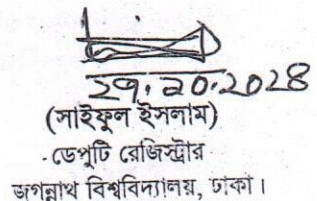 ২৭.১০.২০২৪
(সাইফুল ইসলাম)
ডেপুটি রেজিস্ট্রার
জগন্নাথ বিশ্ববিদ্যালয়, ঢাকা।